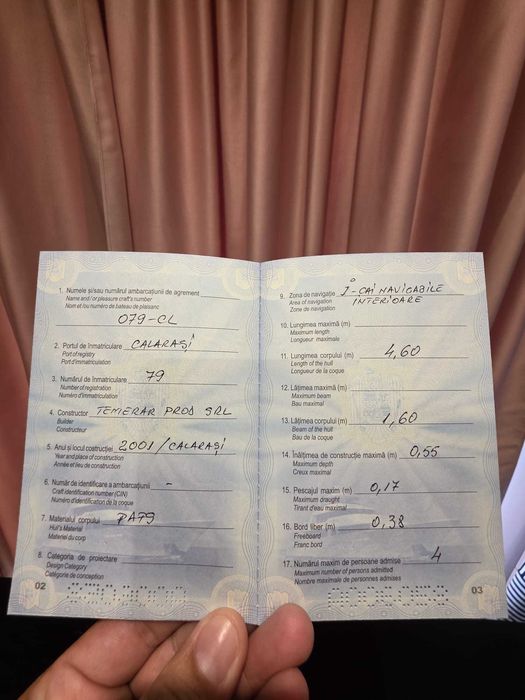 1. Numele și/sau numărul ambarcațiunii de agrement
Name and/or pleasure craft's number
Nom et/ou numéro de bateau de plaisanc
079-CL
2. Portul de înmatriculare CALARAȘI
Port of registry
Port d'immatriculation
3. Numărul de înmatriculare 79
Number of registration
Numéro d'immatriculation
4. Constructor TEMERAR PROD SRL
Builder
Constructeur
5. Anul și locul costrucției 2001/CALARAȘI
Year and place of construction
Année et lieu de construction
6. Număr de identificare a ambarcațiunii -
Craft identification number (CIN)
Numéro d'identification de la coque
7. Materialul corpului PA79
Hull's Material
Materiel du corp
8. Categoria de proiectare
Design Category
Catégorie de conception
02
9. Zona de navigație I-CAI NAVIGABILE
Area of navigation INTERIOARE
Zone de navigation
10. Lungimea maximă (m)
Maximum length
Longueur maximale
11. Lungimea corpului (m) 4,60
Length of the hull
Longueur de la coque
12. Lățimea maximă (m)
Maximum beam
Bau maximal
13. Lățimea corpului (m) 1,60
Beam of the hull
Bau de la coque
14. Înălțimea de construcție maximă (m) 0,55
Maximum depth
Creux maximal
15. Pescajul maxim (m) 0,17
Maximum draught
Tirant d'eau maximal
16. Bord liber (m) 0,38
Freeboard
Franc bord
17. Numărul maxim de persoane admise 4
Maximum number of persons admitted
Nombre maximale de personnes admises
03